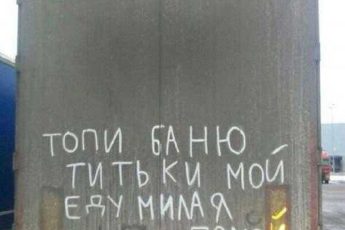 ТОПИ БАНЮ
ТИТЬКИ МОЙ
ЕДУ МИЛАЯ